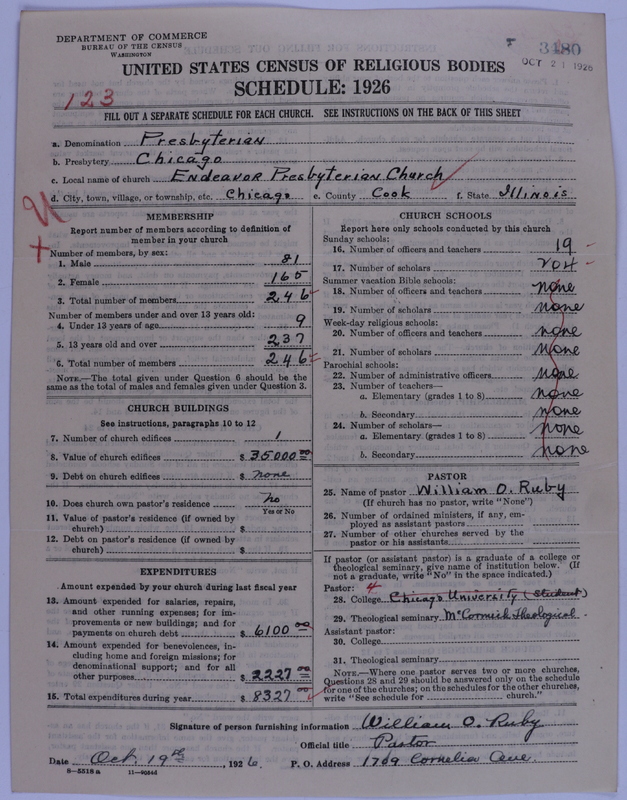 DEPARTMENT OF COMMERCE
BUREAU OF THE CENSUS
WASHINGTON
3480
OCT 21 1926
UNITED STATES CENSUS OF RELIGIOUS BODIES
SCHEDULE: 1926
123
FILL OUT A SEPARATE SCHEDULE FOR EACH CHURCH. SEE INSTRUCTIONS ON THE BACK OF THIS SHEET
a. Denomination Presbyterian
b. Presbytery Chicago
c. Local name of church Endeavor Presbyterian Church
d. City, town, village, or township, etc. Chicago e. County Cook f. State Illinois
MEMBERSHIP
Report number of members according to definition of
member in your church
Number of members, by sex:
1. Male 81
2. Female 165
3. Total number of members 246
Number of members under and over 13 years old:
4. Under 13 years of age 9
5. 13 years old and over 237
6. Total number of members 246
NOTE.—The total given under Question 6 should be the
same as the total of males and females given under Question 3.
CHURCH BUILDINGS
See instructions, paragraphs 10 to 12
7. Number of church edifices 1
8. Value of church edifices $ 35000 00
9. Debt on church edifices $ none
10. Does church own pastor's residence no
Yes or No
11. Value of pastor's residence (if owned by
church) $
12. Debt on pastor's residence (if owned by
church) $
EXPENDITURES
Amount expended by your church during last fiscal year
13. Amount expended for salaries, repairs,
and other running expenses; for im-
provements or new buildings; and for
payments on church debt $ 6100 00
14. Amount expended for benevolences, in-
cluding home and foreign missions; for
denominational support; and for all
other purposes $ 2227 00
15. Total expenditures during year $ 8327 00
CHURCH SCHOOLS
Report here only schools conducted by this church
Sunday schools:
16. Number of officers and teachers 19
17. Number of scholars 204
Summer vacation Bible schools:
18. Number of officers and teachers none
19. Number of scholars none
Week-day religious schools:
20. Number of officers and teachers none
21. Number of scholars none
Parochial schools:
22. Number of administrative officers none
23. Number of teachers—
a. Elementary (grades 1 to 8) none
b. Secondary none
24. Number of scholars—
a. Elementary (grades 1 to 8) none
b. Secondary none
PASTOR
25. Name of pastor William O. Ruby
(If church has no pastor, write "None")
26. Number of ordained ministers, if any, em-
ployed as assistant pastors
27. Number of other churches served by the
pastor or his assistants
If pastor (or assistant pastor) is a graduate of a college or
theological seminary, give name of institution below. (If
not a graduate, write "No" in the space indicated.)
Pastor:
28. College Chicago University (Student)
29. Theological seminary McCormick Theological
Assistant pastor:
30. College
31. Theological seminary
NOTE.—Where one pastor serves two or more churches,
Questions 28 and 29 should be answered only on the schedule
for one of the churches; on the schedules for the other churches,
write "See schedule for church."
Signature of person furnishing information William O. Ruby
Official title Pastor
Date Oct. 19th, 1926 P. O. Address 1709 Cornelia Ave.
8—5518 a